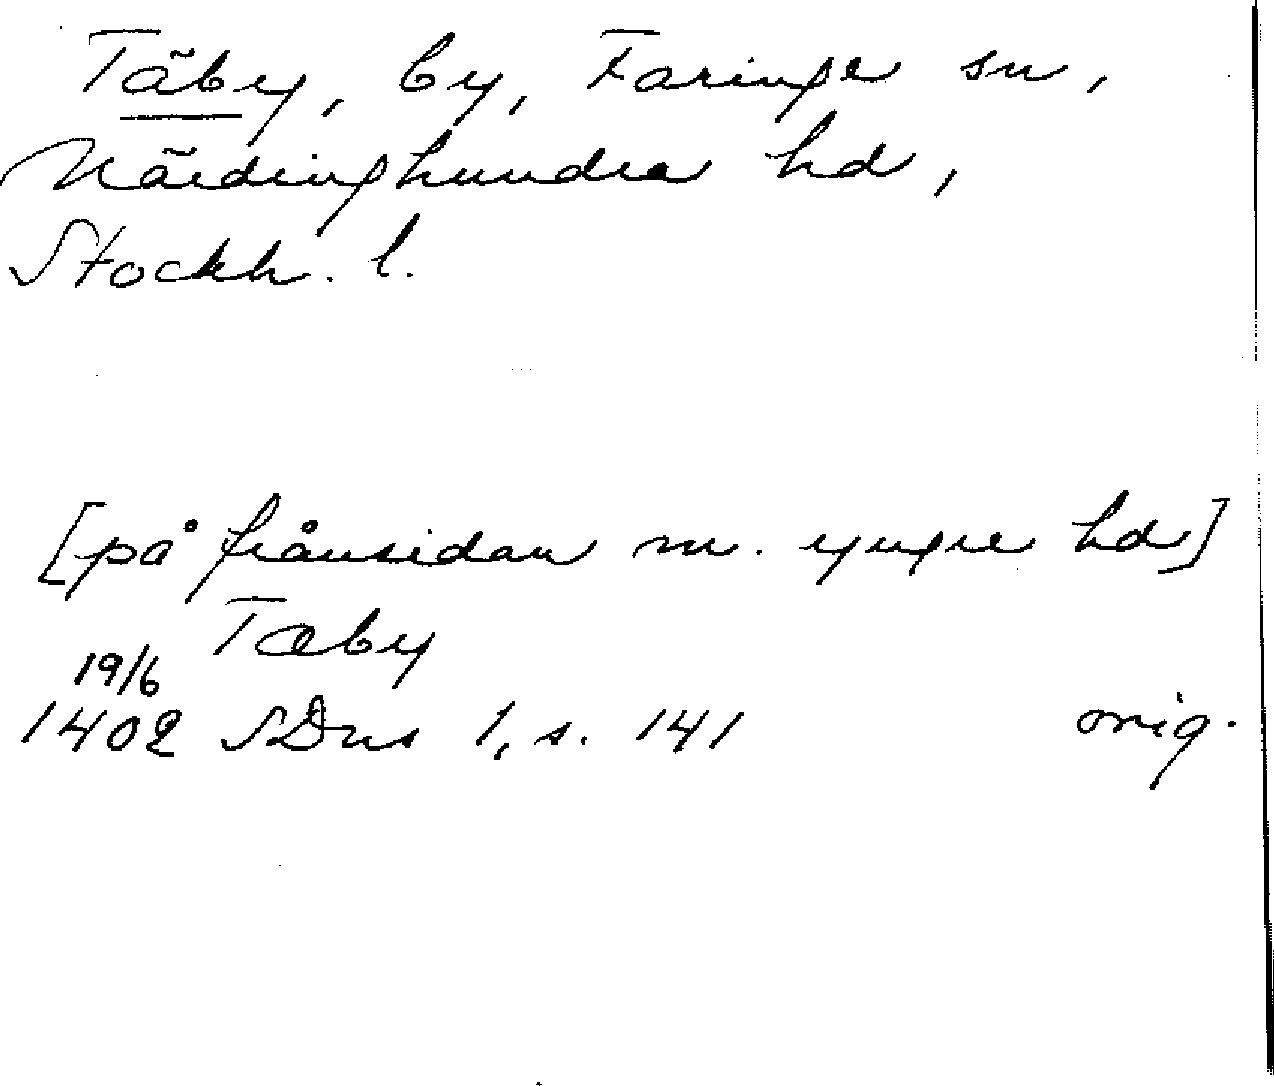 Täby, by, Faringe sn,
Närdinghundra hd,
Stockh. l.
[på frånsidan m. yngre hd]
Tæby
19/6
1402 SDns 1, s. 141 orig.